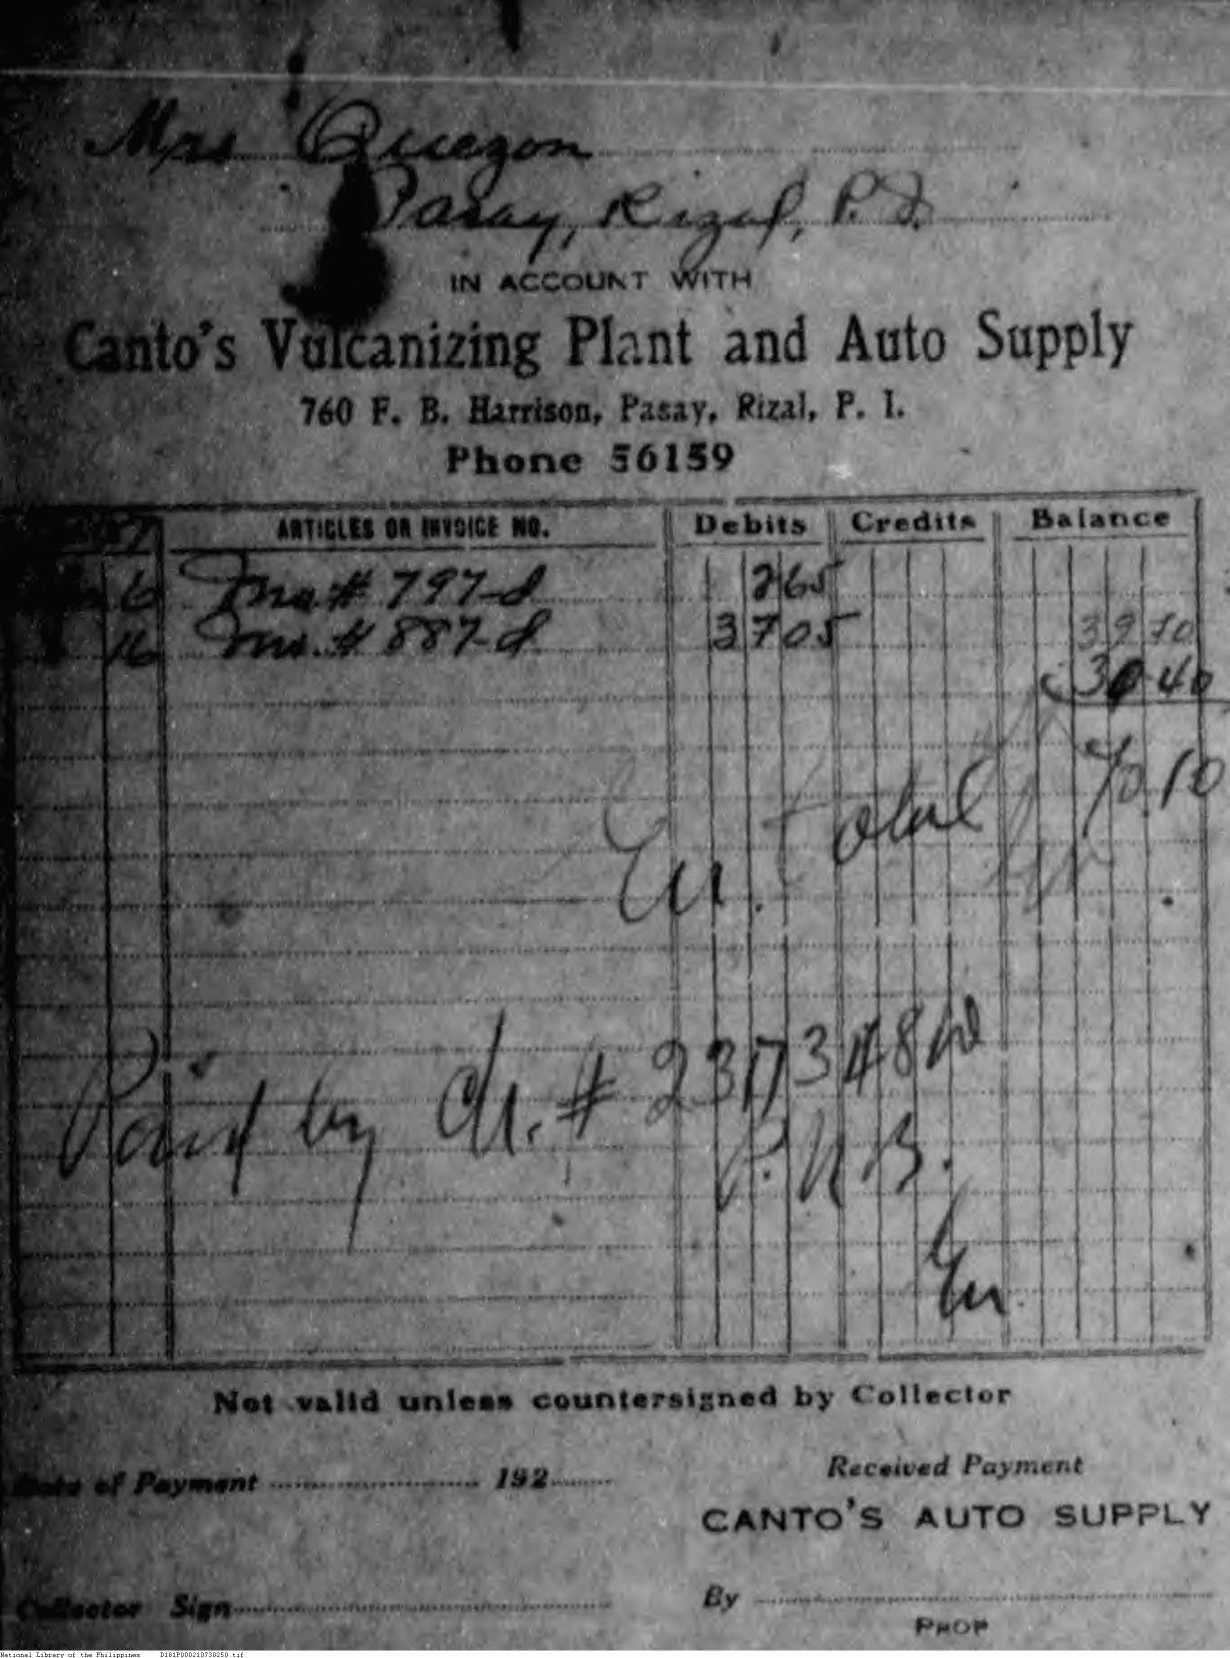 Mrs Quezon
Pasay, Rizal, P. I.
IN ACCOUNT WITH
Canto's Vulcanizing Plant and Auto Supply
760 F. B. Harrison, Pasay, Rizal, P. I.
Phone 56159
ARTICLES OR INVOICE NO. Debits Credits Balance
6 Inv. # 797-d 2 65
16 Inv. # 887-d 37 05 39 70
30 40
total 70.10
Paid by Ch. #
P.N.B.
Not valid unless countersigned by Collector
Date of Payment 192
Received Payment
CANTO'S AUTO SUPPLY
Collector Sign
By
PROP
National Library of the Philippines D181P000210738250.tif